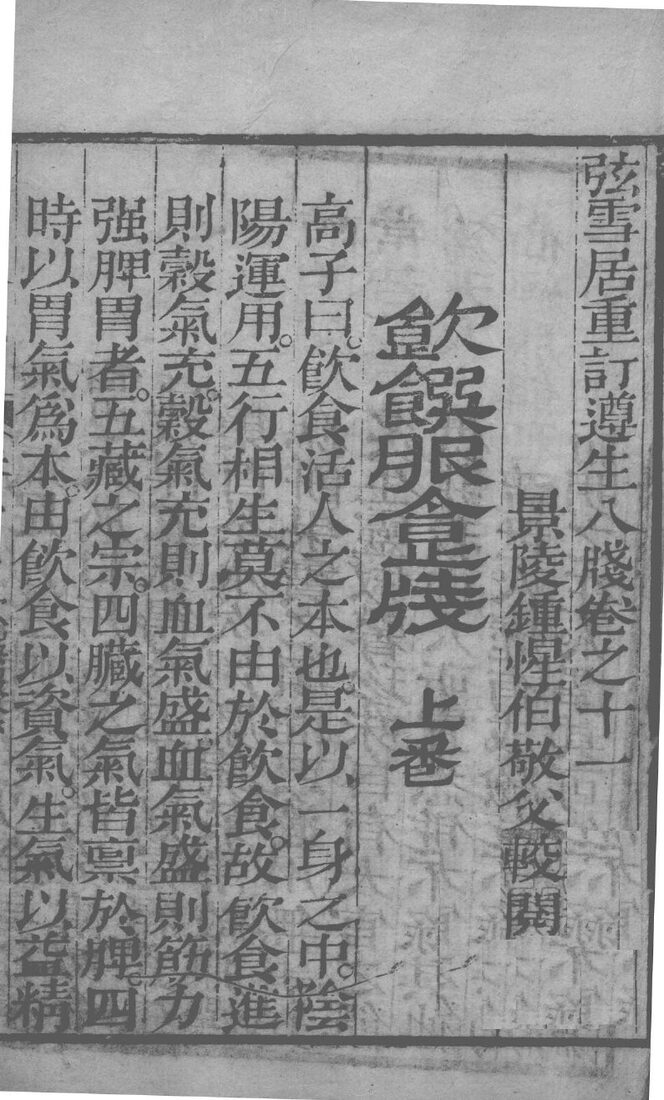 弦雪居重訂遵生八牋卷之十一
景陵鍾惺伯敬父較閱
飲饌服食牋 上卷
高子曰。飲食活人之本也。是以一身之中。陰
陽運用。五行相生。莫不由於飲食。故飲食進
則穀氣充。穀氣充則血氣盛。血氣盛則筋力
强。脾胃者。五藏之宗。四臟之氣皆禀於脾。四
時以胃氣爲本。由飲食以資氣。生氣以益精